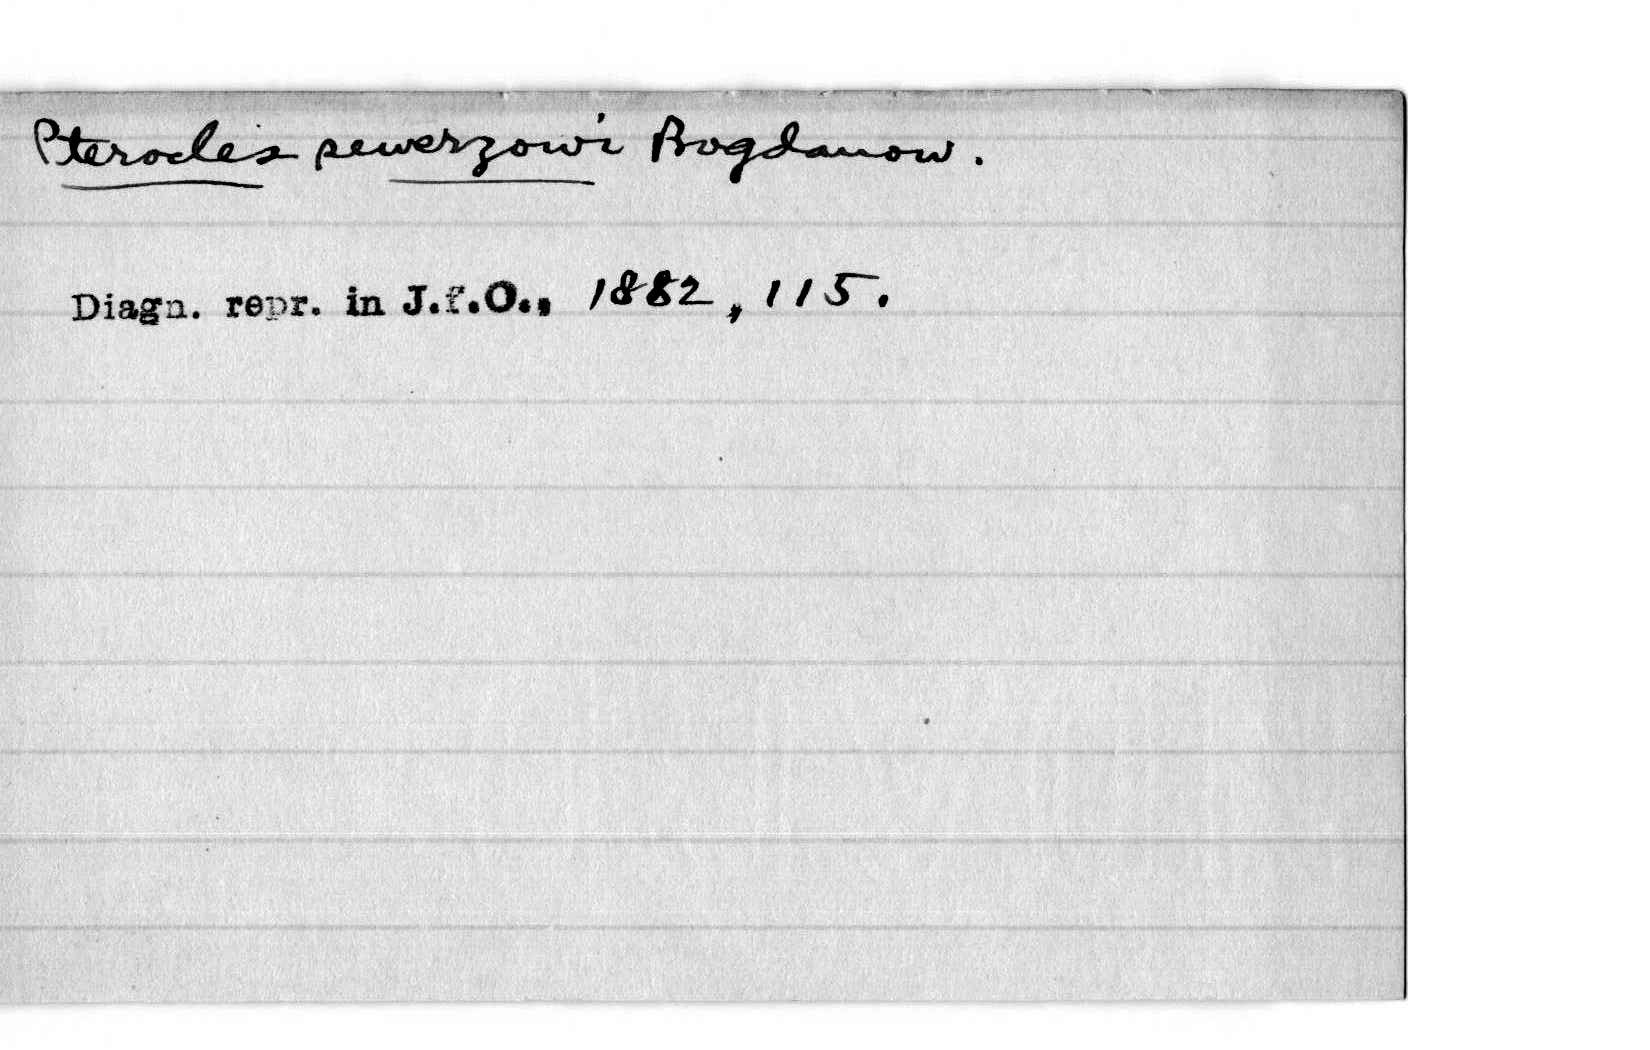 Pterocles sewerzowi Bogdanow.
Diagn. repr. in J.f.O., 1882, 115.